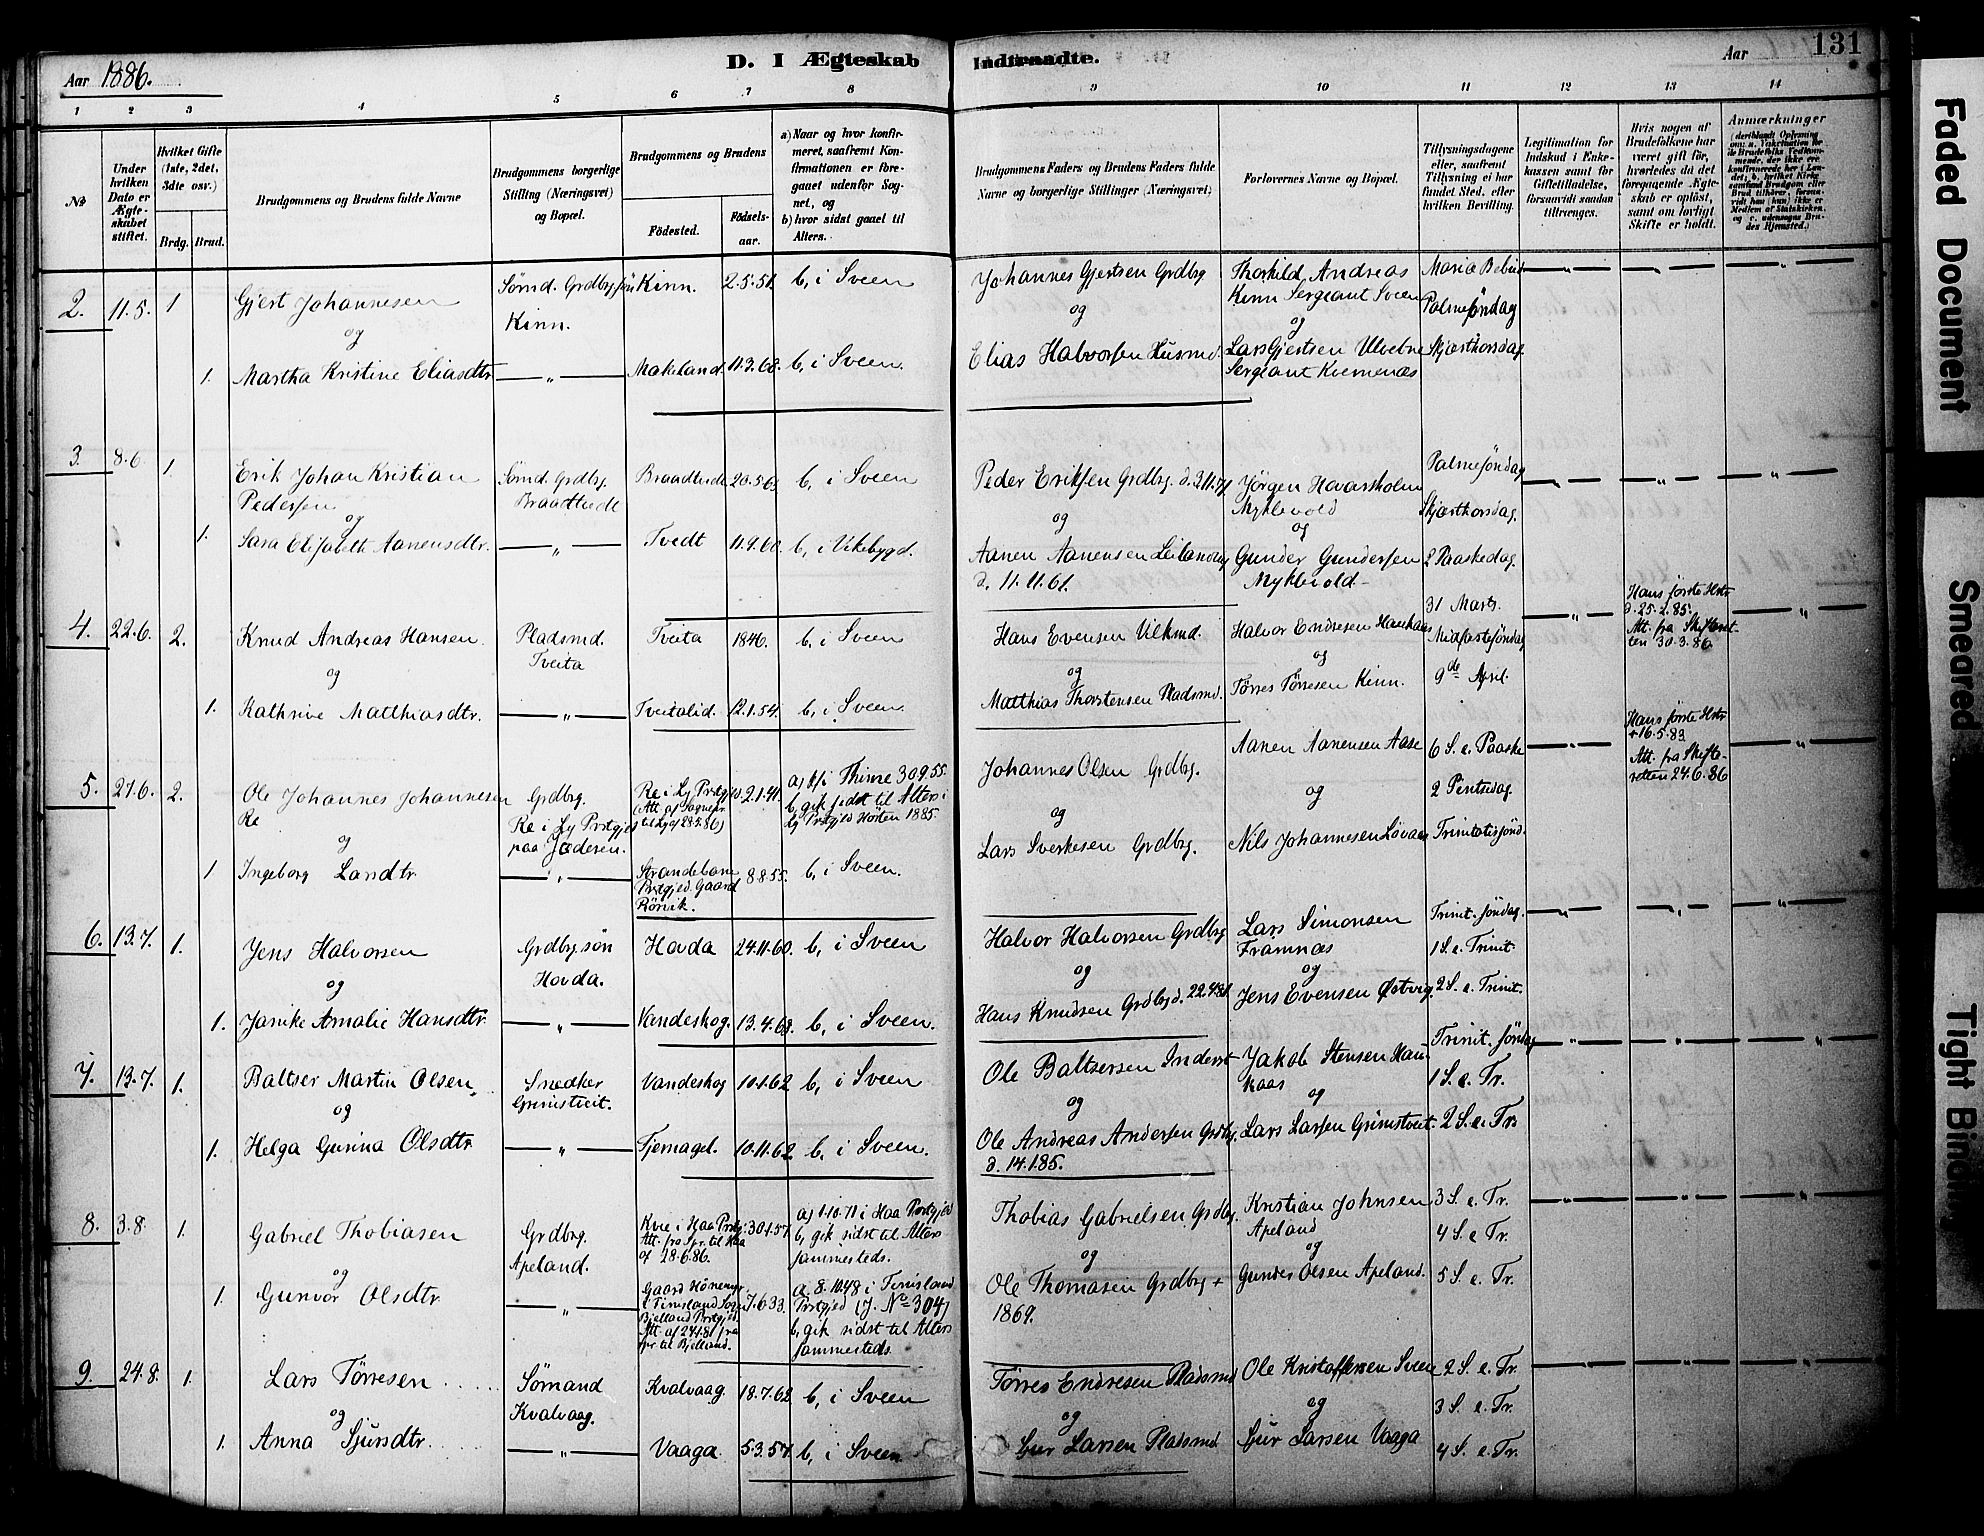 Aar 1886.
D. I Ægteskab Indtraadte.
Aar 131
1 2 3 4 5 6 7 8 9 10 11 12 13 14
No
Under hvilken Dato er Ægteskabet stiftet.
Hvilket Gifte (1ste, 2det, 3dte osv.)
Brdg. Brud.
Brudgommens og Brudens fulde Navne
Brudgommens borgerlige Stilling (Næringsvei) og Bopæl.
Brudgommens og Brudens
Födested.
Födselsaar.
a) Naar og hvor konfirmeret, saafremt Konfirmationen er foregaaet udenfor Sognet, og
b) hvor sidst gaaet til Alters.
Brudgommens Faders og Brudens Faders fulde Navne og borgerlige Stillinger (Næringsvei)
Forlovernes Navne og Bopæl.
Tillysningsdagene eller, saafremt Tillysning ei har fundet Sted, efter hvilken Bevilling.
Legitimation for Indskud i Enkekassen samt for Giftetilladelse, forsaavidt saadan tiltrænges.
Hvis nogen af Brudefolkene har været gift för, hvorledes da det foregaaende Ægteskab er oplöst, samt om lovligt Skifte er holdt.
Anmærkninger
2. 11.5. 1 Gjert Johannesen Sømd. Grdbrgsøn Kinn. Kinn. 2.5.51. b, i Sveen Johannes Gjertsen Grdbg Thorkild Andreas Kinn Sergeant Sveen Maria Bebud. — „ — — „ — — „ —
og og og Palmesöndag
1. Martha Kristine Eliasdtr. — „ — Makeland. 11.3.60. b, i Sveen. Elias Halvorsen Husmd. Lars Gjertsen Ulvetne Sergeant Kvernenæs Skjærthorsdag.
3. 8.6 1. Erik Johan Kristian Pedersen Sømd. Grdbrg. Braadtvedt Braadtvedt 20.5.63. b, i Sveen Peder Eriksen Grdbrg. d. 3.11.71. Jörgen Haarsholm Myklevold Palmesöndag — „ — — „ — — „ —
og og og Skjærthorsdag.
1. Sara Elisabeth Aanensdtr. — „ — Tvedt 11.9.60. b, i Vikebygd. Aanen Aanensen Leilænding d. 11.11.61. Gunder Gundersen Myklevold 2 Paaskedag.
4. 22.6. 2. Knud Andreas Hansen Pladsmd. Tveita Tveita 1846. b, i Sveen Hans Evensen Vilkmd. Halvor Endresen Haukaas 31 Marts. — „ — Hans første Hstr d. 25.2.85. Att. fra Skifteretten 30.3.86 — „ —
og og og Midfastesöndag
1. Kathrine Matthiasdtr. — „ — Tveitalid. 12.1.54. b, i Sveen. Matthias Thorstensen Pladsmd. Törres Törresen Kinn. 9de April.
5. 27.6. 2. Ole Johannes Johannesen Re Grdbrg. Re i Ly Prstgjd paa Jæderen. Re i Ly Prstgjd. (Att. af Sognepr. til Ly af 28.5.86) 2.1.41. a, i Thime 30.9.55. b, gik sidst til Alters i Ly Prstgjld Hösten 1885. Johannes Olsen Grdbg. Aanen Aanensen Aase 6 S. e. Paaske — „ — Hans første Hstr + 16.5.83 Att. fra Skifteretten 24.6.86 — „ —
og og og 2 Pintsedag.
1 Ingeborg Larsdtr. — „ — Strandebarm Prstgjd. Gaard Rörvik. 8.8.55. b, i Sveen. Lars Sverkesen Grdbg. Nils Johannesen Lövaas Trinitatissönd.
6. 13.7. 1. Jens Halvorsen Grdbrg.søn Hovda. Hovda 24.11.60. b, i Sveen Halvor Halvorsen Grdbg Lars Simonsen Framnæs Trinit. söndag. — „ — — „ — — „ —
og og og 1 S. e. Trinit.
1. Janike Amalie Hansdtr. — „ — Vandeskog. 13.4.63. b, i Sveen. Hans Knudsen Grdbg d. 22.4.81. Jens Evensen Østvig. 2 S. e. Trinit.
7. 13.7. 1. Baltser Martin Olsen Snedker Grimstveit. Vandeskog 10.1.62 b, i Sveen Ole Baltsersen Inderst Jakob Stensen Haukaas Trinit. söndag — „ — — „ — — „ —
og og og 1 S. e. Tr.
1. Helga Gurina Olsdtr — „ — Tjernagel. 10.11.62. b, i Sveen. Ole Andreas Andersen Grdbg. d. 14.1.85. Lars Larsen Grimstveit. 2 S. e. Tr.
8. 3.8. 1. Gabriel Thobiasen Grdbrg. Apeland. Kvie i Haa Prstgj. Att. fra Spr. til Haa af 28.6.86. 30.1.57. a, 1.10.71 i Haa Prstgjld b, gik sidst til Alters sammesteds. Thobias Gabrielsen Grdbg. Kristian Johnsen Apeland 3 S. e. Tr. — „ — — „ — — „ —
og og og 4 S. e. Tr.
1. Gunvor Olsdtr — „ — Gaard i Finsland Sogn Bjelland Prstgjd. Att. af fra Spr til Bjelland. 7.6.33. a. 8.10.48 i Finsland Prstgjed (J. No 304) b, gik sidst til Alters sammesteds. Ole Thomasen Grdbg + 1869. Gunder Olsen Apeland. 5 S. e. Tr.
9. 24.8. 1. Lars Törresen Sömand Kvalvaag. Kvalvaag 18.7.62 b, i Sveen Törres Endresen Pladsmd Ole Kristoffersen Sveen 2 S. e. Tr. — „ — — „ — — „ —
og og og 3 S. e. Tr.
1. Anna Sjursdtr. — „ — Vaaga 5.3.57. b, i Sveen Sjur Larsen Pladsmd Sjur Larsen Vaaga 4 S. e. Tr.
Faded Document
Smeared
Tight Binding